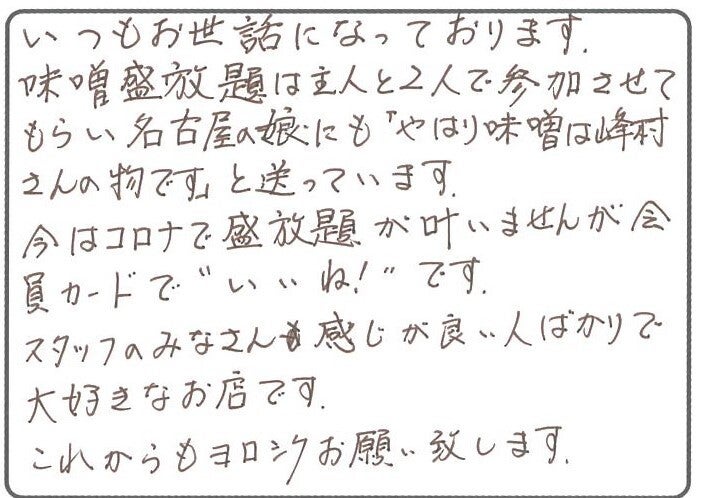 いつもお世話になっております.
味噌盛放題は主人と2人で参加させて
もらい名古屋の娘にも「やはり味噌は峰村
さんの物です」と送っています.
今はコロナで盛放題が叶いませんが会
員カードで"いいね!"です.
スタッフのみなさんも感じが良い人ばかりで
大好きなお店です.
これからもヨロシクお願い致します.